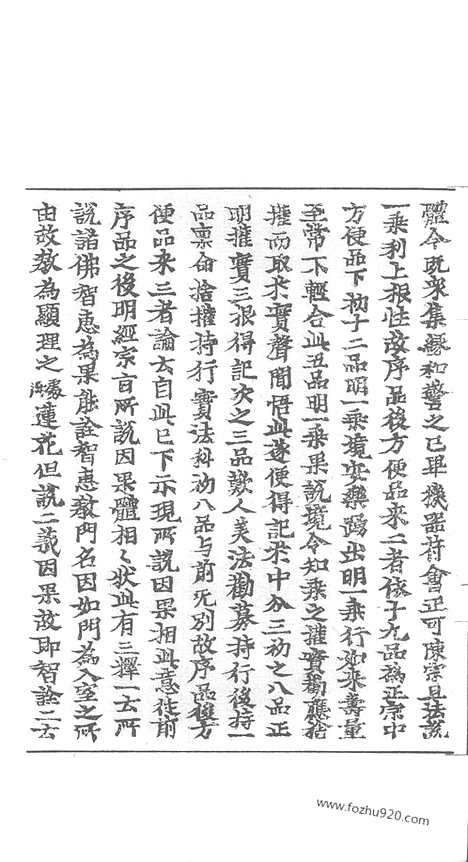 體今既眾集緣和警之已畢機器符會正可陳宗且法說
一乘利上根性故序品後方便品來二者依十九品為正宗中
方便品下初十二品明一乘境安樂踊出明一乘行如來壽量
至常不輕合此五品明一乘果說境令知乘之權實勸應捨
權而取求實聲聞悟此遂便得記果中分三初之八品正
明權實三根得記次之三品歎人美法勸募持行後持一
品稟命捨權持行實法科初八品与前无別故序品後方
便品來三者論云自此已下示現所說因果相此意從前
序品之後明經宗百所說因果體相之狀此有三釋一云所
說諸佛智惠為果能詮智惠教門名因如門為入室之所
由故教為顯理之處蓮花但說二義因果故即智詮二云
www.fozhu920.com